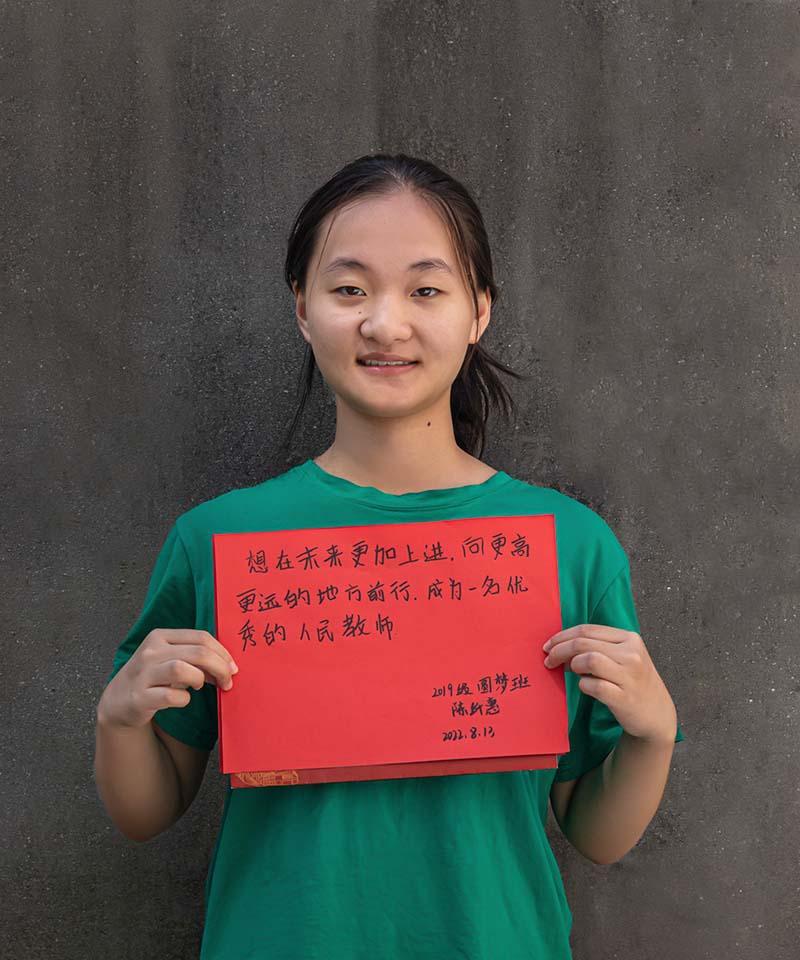 想在未来更加上进.向更高
更远的地方前行.成为一名优
秀的人民教师
2019级圆梦班
陈 惠
2022.8.13